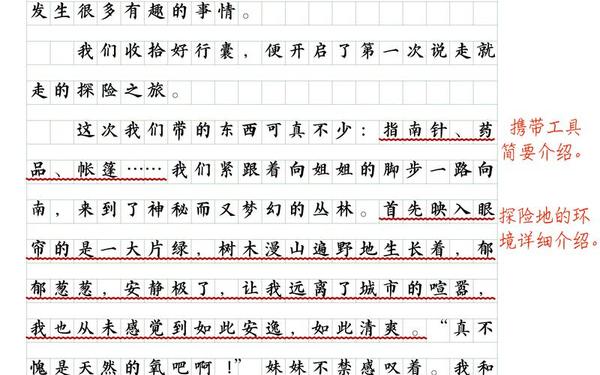 发生很多有趣的事情。
我们收拾好行囊，便开启了第一次说走就
走的探险之旅。
这次我们带的东西可真不少：指南针、药
品、帐篷……我们紧跟着向姐姐的脚步一路向
南，来到了神秘而又梦幻的丛林。首先映入眼
帘的是一大片绿，树木漫山遍野地生长着，郁
郁葱葱，安静极了，让我远离了城市的喧嚣，
我也从未感觉到如此安逸，如此清爽。“真不
愧是天然的氧吧啊！”妹妹不禁感叹着。我和
携带工具
简要介绍。
探险地的环
境详细介绍。